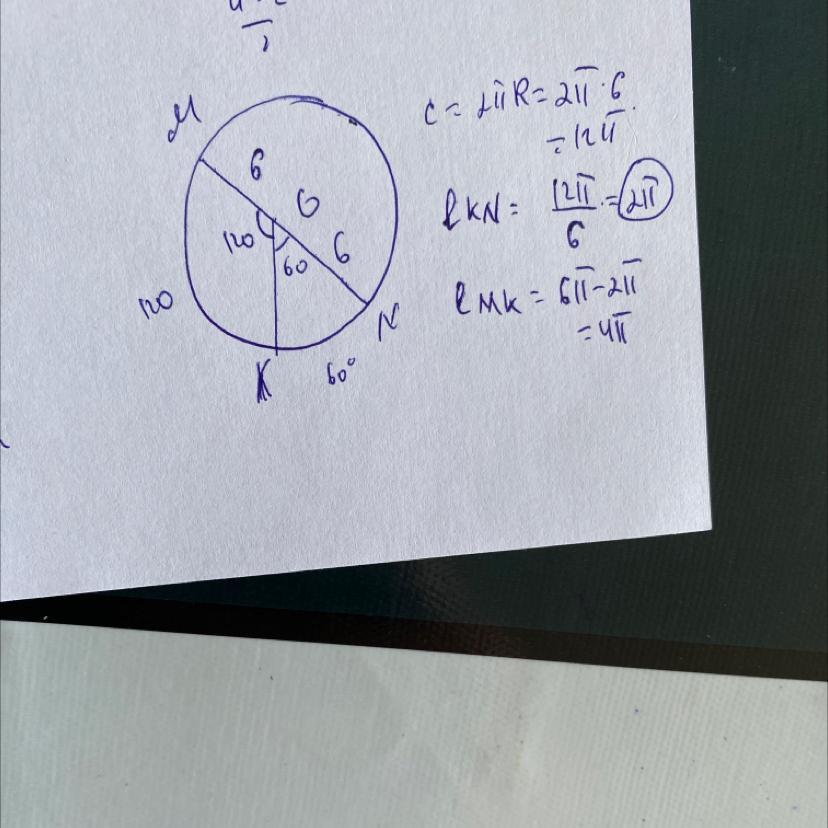 M
6
O
120
60
6
120
N
K
60°
C = 2πR = 2π·6
= 12π.
ℓKN = 12π/6 = 2π
ℓMK = 6π-2π
= 4π